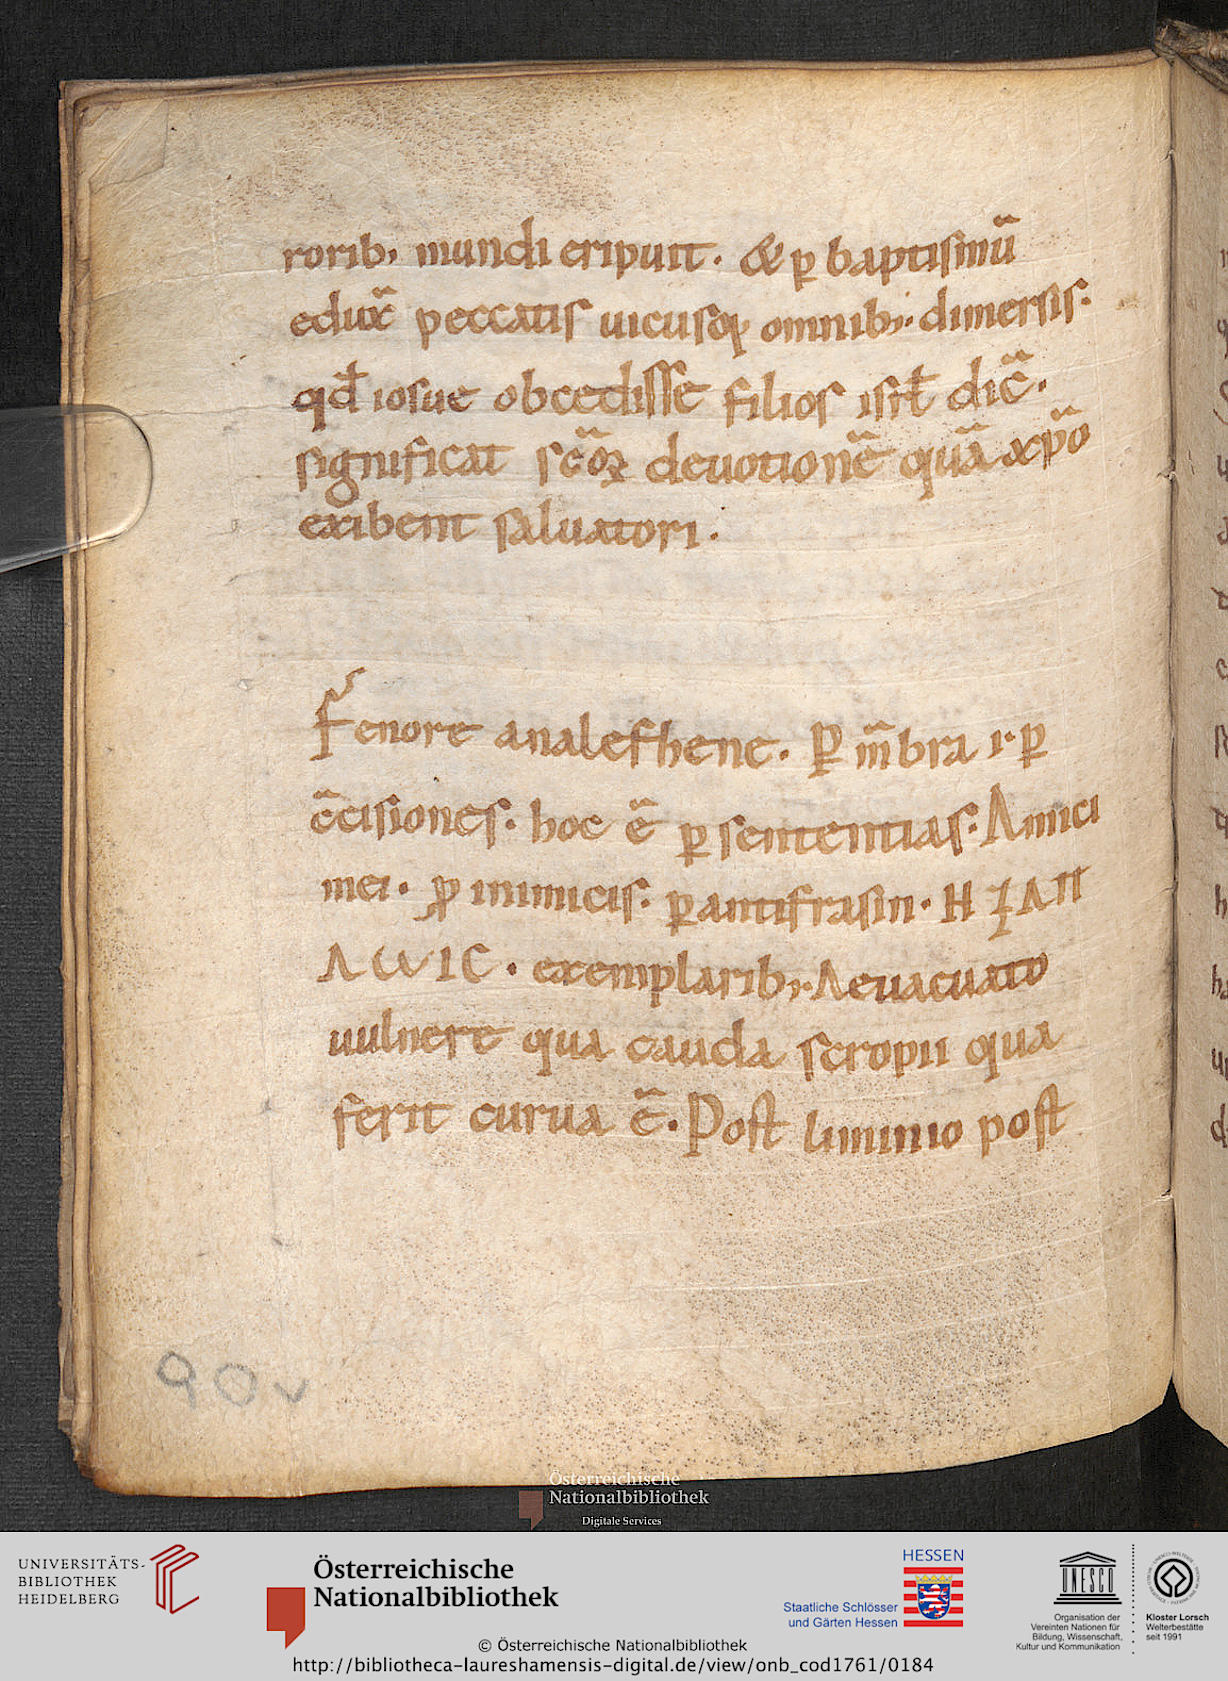 rorib; mundi eripuit. & p̱ baptismū
edux̄ peccatis uicusq; omnib;. dimersis.
qđ iosue obcedisse filios isrł dic̄.
significat sc̄oꝝ deuotionē quā xp̄o
exibent saluatori.
Fenore analefhene. ꝑ m̄bra .i. ꝑ
c̄cisiones. hoc ē ꝑ sententias. Amici
mei. ꝓ inimicis. ꝑ antifrasin. H
ΛωIC. exemplarib;. A euacuato
uulnere qua cauda scropii qua
ferit curua ē. Post liminio post
90v
Österreichische
Nationalbibliothek
Digitale Services
UNIVERSITÄTS-
BIBLIOTHEK
HEIDELBERG
Österreichische
Nationalbibliothek
HESSEN
Staatliche Schlösser
und Gärten Hessen
UNESCO
Organisation der
Vereinten Nationen für
Bildung, Wissenschaft,
Kultur und Kommunikation
Kloster Lorsch
Welterbestätte
seit 1991
© Österreichische Nationalbibliothek
http://bibliotheca-laureshamensis-digital.de/view/onb_cod1761/0184